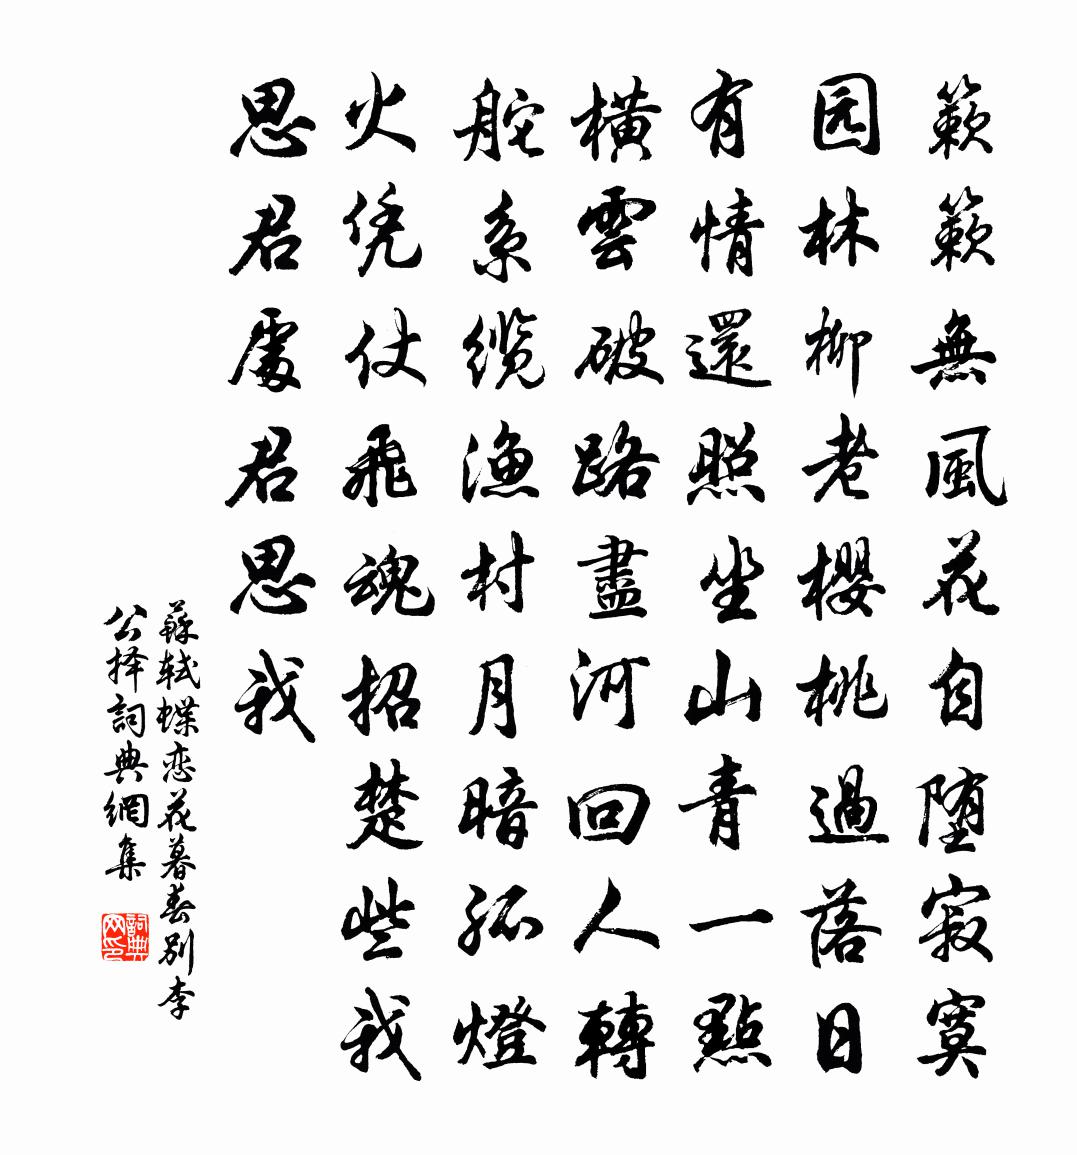 簌簌無風花自堕寂寞
园林柳老櫻桃過落日
有情還照坐山青一點
横雲破路盡河回人轉
舵系缆漁村月暗孤燈
火凭仗飛魂招楚些我
思君處君思我
蘇轼蝶恋花暮春别李
公择詞典網集
詞典网印